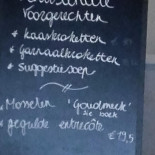 Voorgerechten
* kaaskroketten
* Garnaalkroketten
* Suggestiesoep
* Mosselen 'Goudmerk'
zie boek
* gegrilde entrecôte
€ 19,5